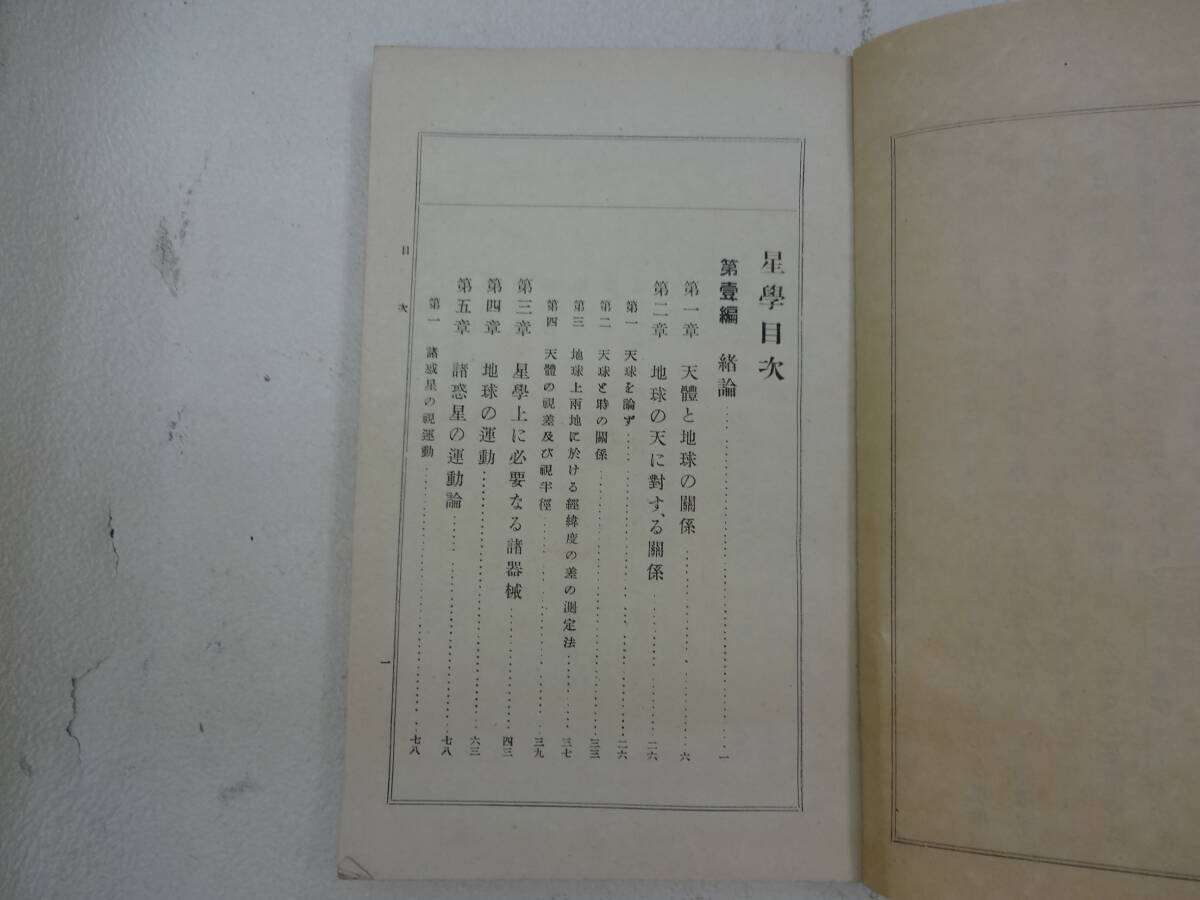 星學目次
第壹編 緒論……一
第一章 天體と地球の關係……六
第二章 地球の天に對する關係……二六
第一 天球を論ず……二六
第二 天球と時の關係……三三
第三 地球上兩地に於ける經緯度の差の測定法……三七
第四 天體の視差及び視半徑……三九
第三章 星學上に必要なる諸器械……四三
第四章 地球の運動……六三
第五章 諸惑星の運動論……七八
第一 諸惑星の視運動……七八
目次
一